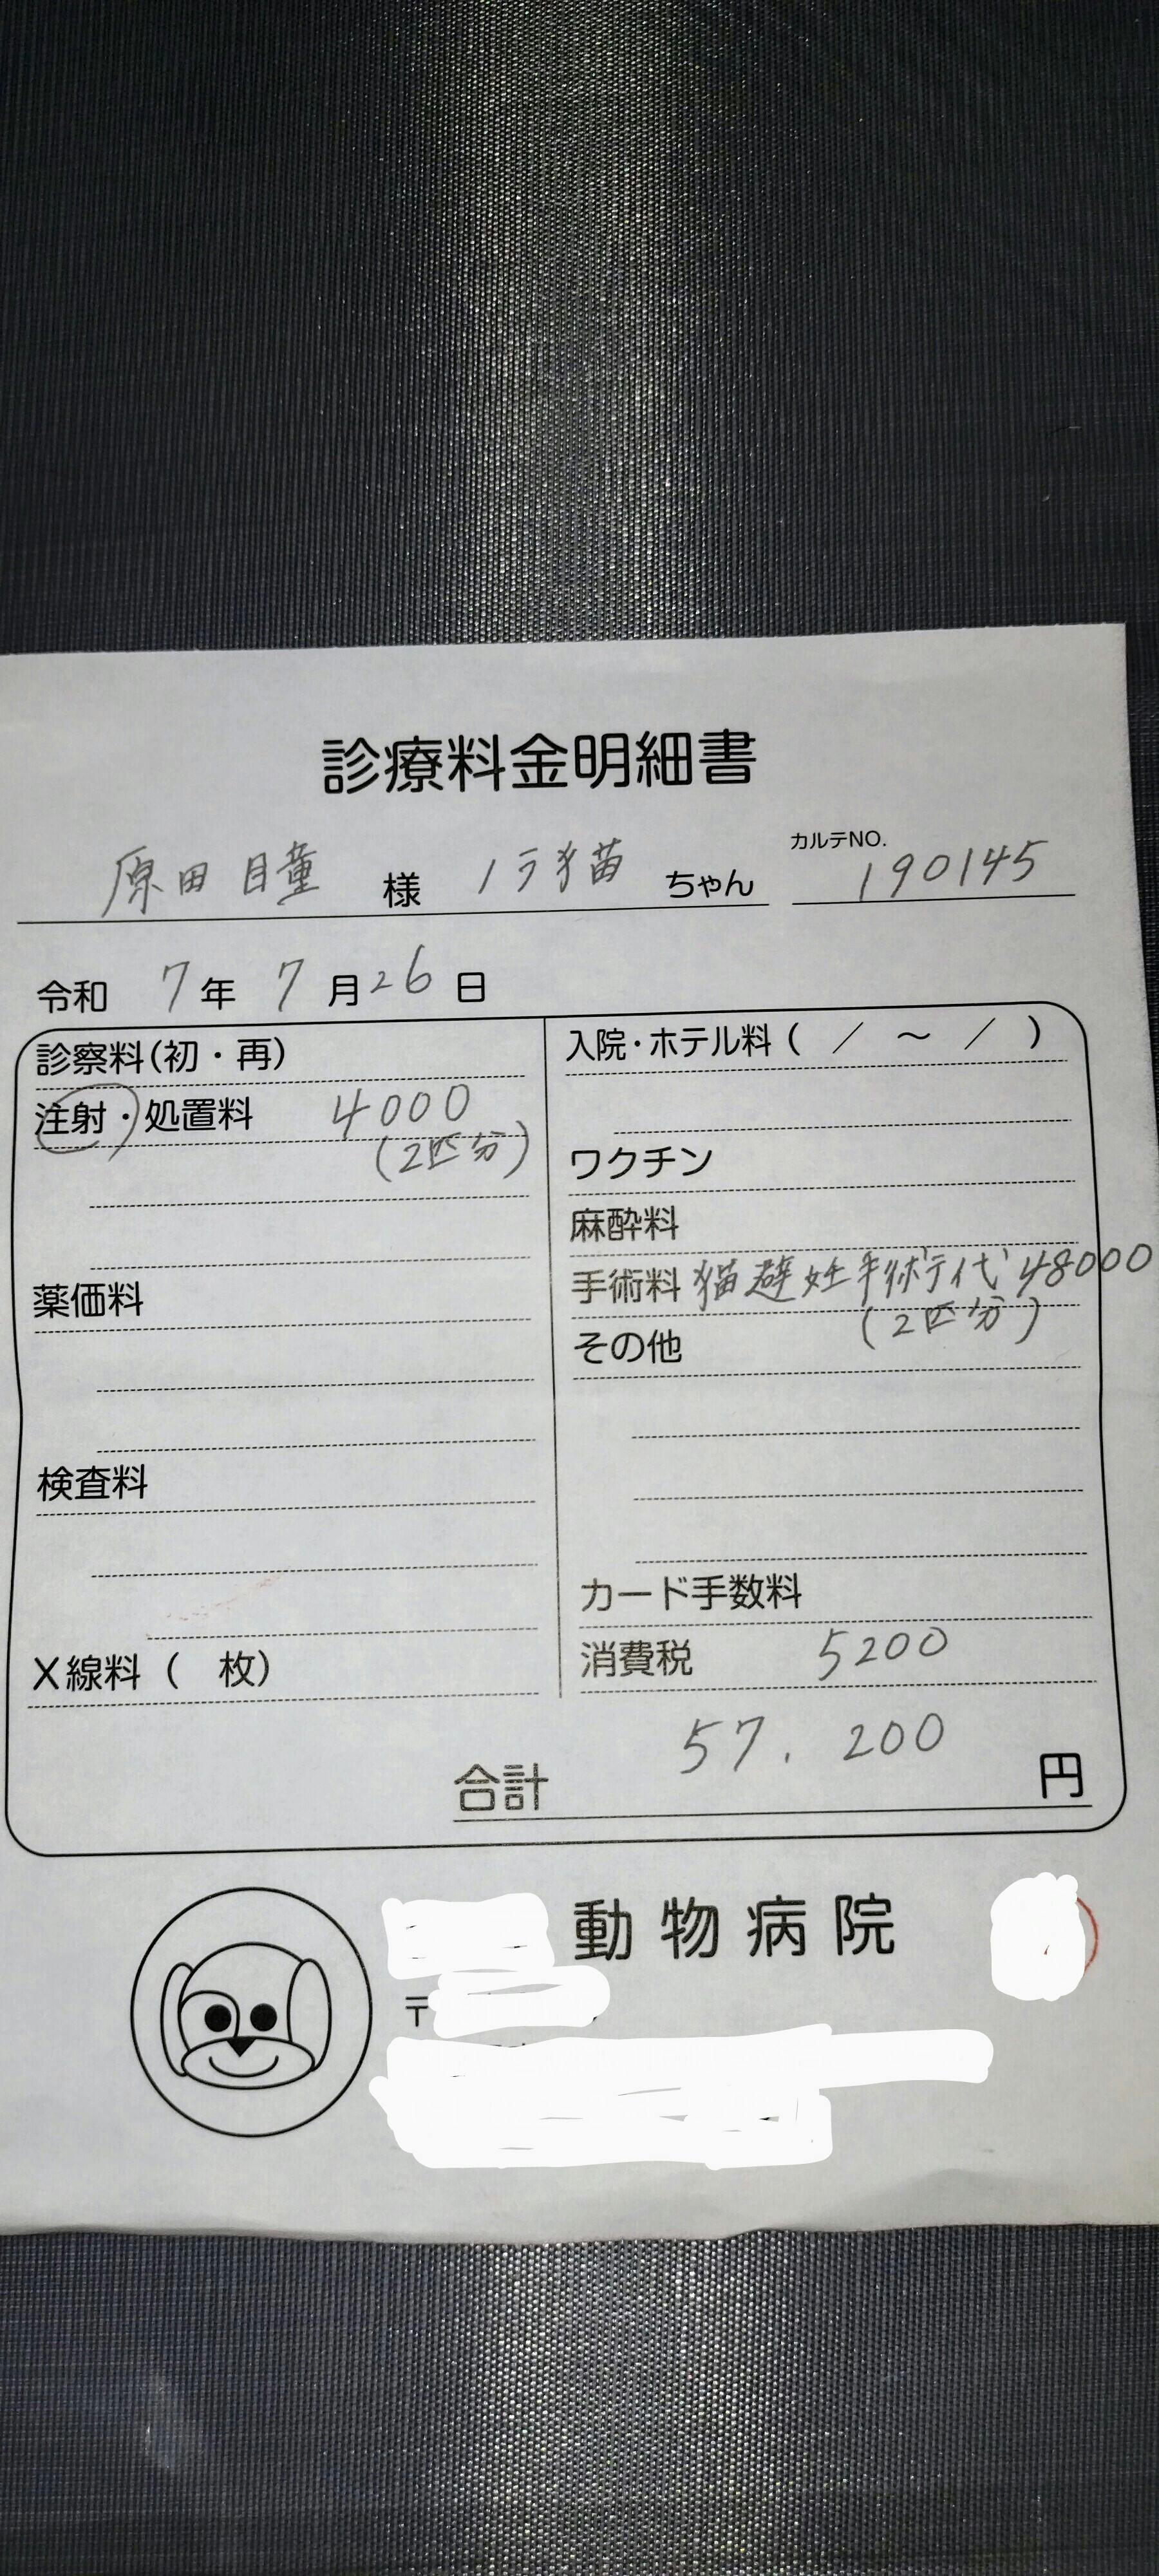 診療料金明細書
カルテNO.
原田 瞳 様 ノラ猫 ちゃん 190145
令和 7年 7月26日
診察料(初・再)
注射・処置料 4000
(2匹分)
薬価料
検査料
X線料 ( 枚)
入院・ホテル料 ( / 〜 / )
ワクチン
麻酔料
手術料 猫避妊手術代 48000
(2匹分)
その他
カード手数料
消費税 5200
合計 57.200 円
動物病院
〒